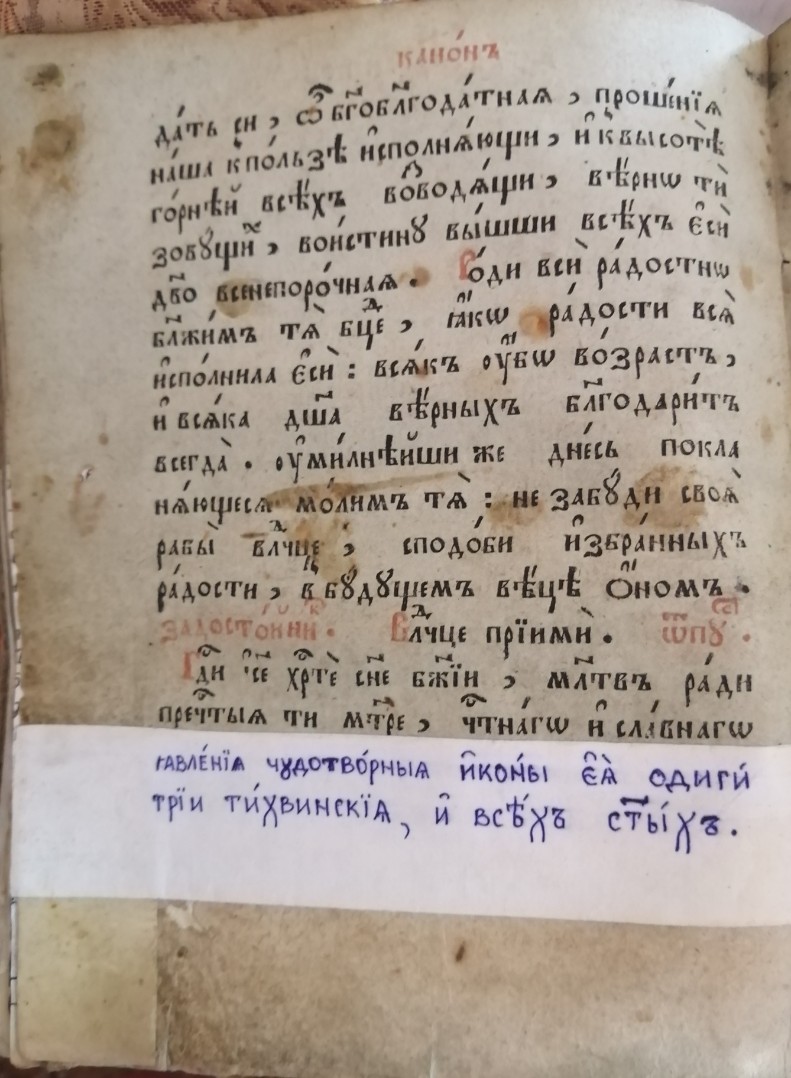 кано́нъ
да́ть си , ѽ бг҃обл҃года́тная , проше́нїѧ
на́ша к̾ по́льзѣ и҆сполнѧ́ющи , и҆ к̾ высотѣ̀
го́рнѣй всѣ́хъ во҆́водѧ́щи , вѣ́рнѡ тѝ
зовꙋ́щих̾ , вои́стинꙋ вы́шши всѣ́хъ є҆сѝ
дв҃о всенепоро́чная . Ро́ди всѝ ра́достнѡ
бл҃жи́мъ тѧ̀ бцⷣе , ꙗ҆́кѡ ра́дости всѧ̀
и҆спо́лнила є҆сѝ : всѧ́къ ᲂу҆́бѡ во́зрастъ ,
и҆ всѧ́ка дш҃а̀ вѣ́рныхъ бл҃годари́тъ
всегда̀ . ᲂу҆ми́лнѣйши же дне́сь покла
нѧ́ющесѧ мо́лимъ тѧ̀ : не забꙋ́ди своѧ̀
рабы̀ влⷣчце , сподо́би и҆збра́нныхъ
ра́дости , в̾ бꙋ́дꙋщемъ вѣ́цѣ ѻ҆́номъ .
задосто́йникъ . Влⷣчце прїимѝ . ѿпꙋⷭ .
Гд҃и і҆с҃е хрⷭ҇тѐ сн҃е бж҃їи , мл҃твъ ра́ди
пречⷭ҇тыѧ ти мт҃ре , чⷭ҇тна́гѡ и҆ сла́внагѡ
ꙗвле́нїѧ чудотво́рныѧ и҆ко́ны є҆ѧ̀ одиги́
трїи ти́хвинскїѧ , и҆ всѣ́хъ ст҃ы́хъ .